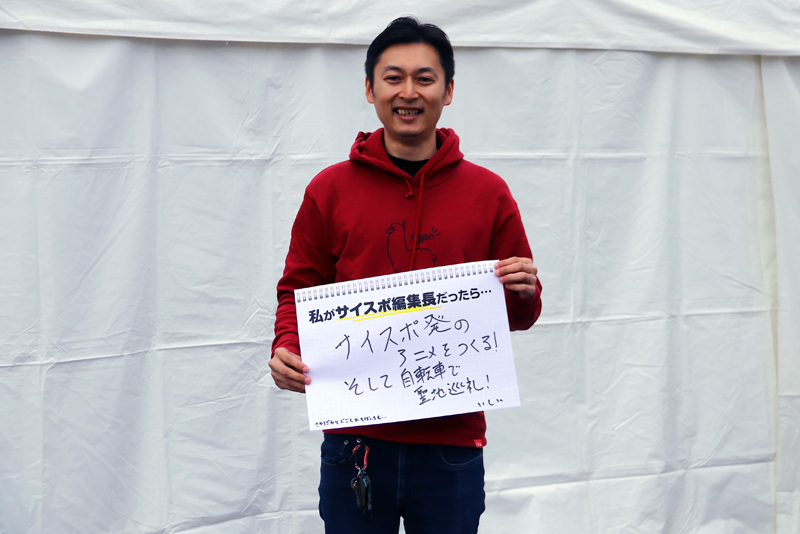 私がサイスポ編集長だったら…
サイスポ発の
アニメをつくる!
そして自転車で
聖地巡礼!
いしい